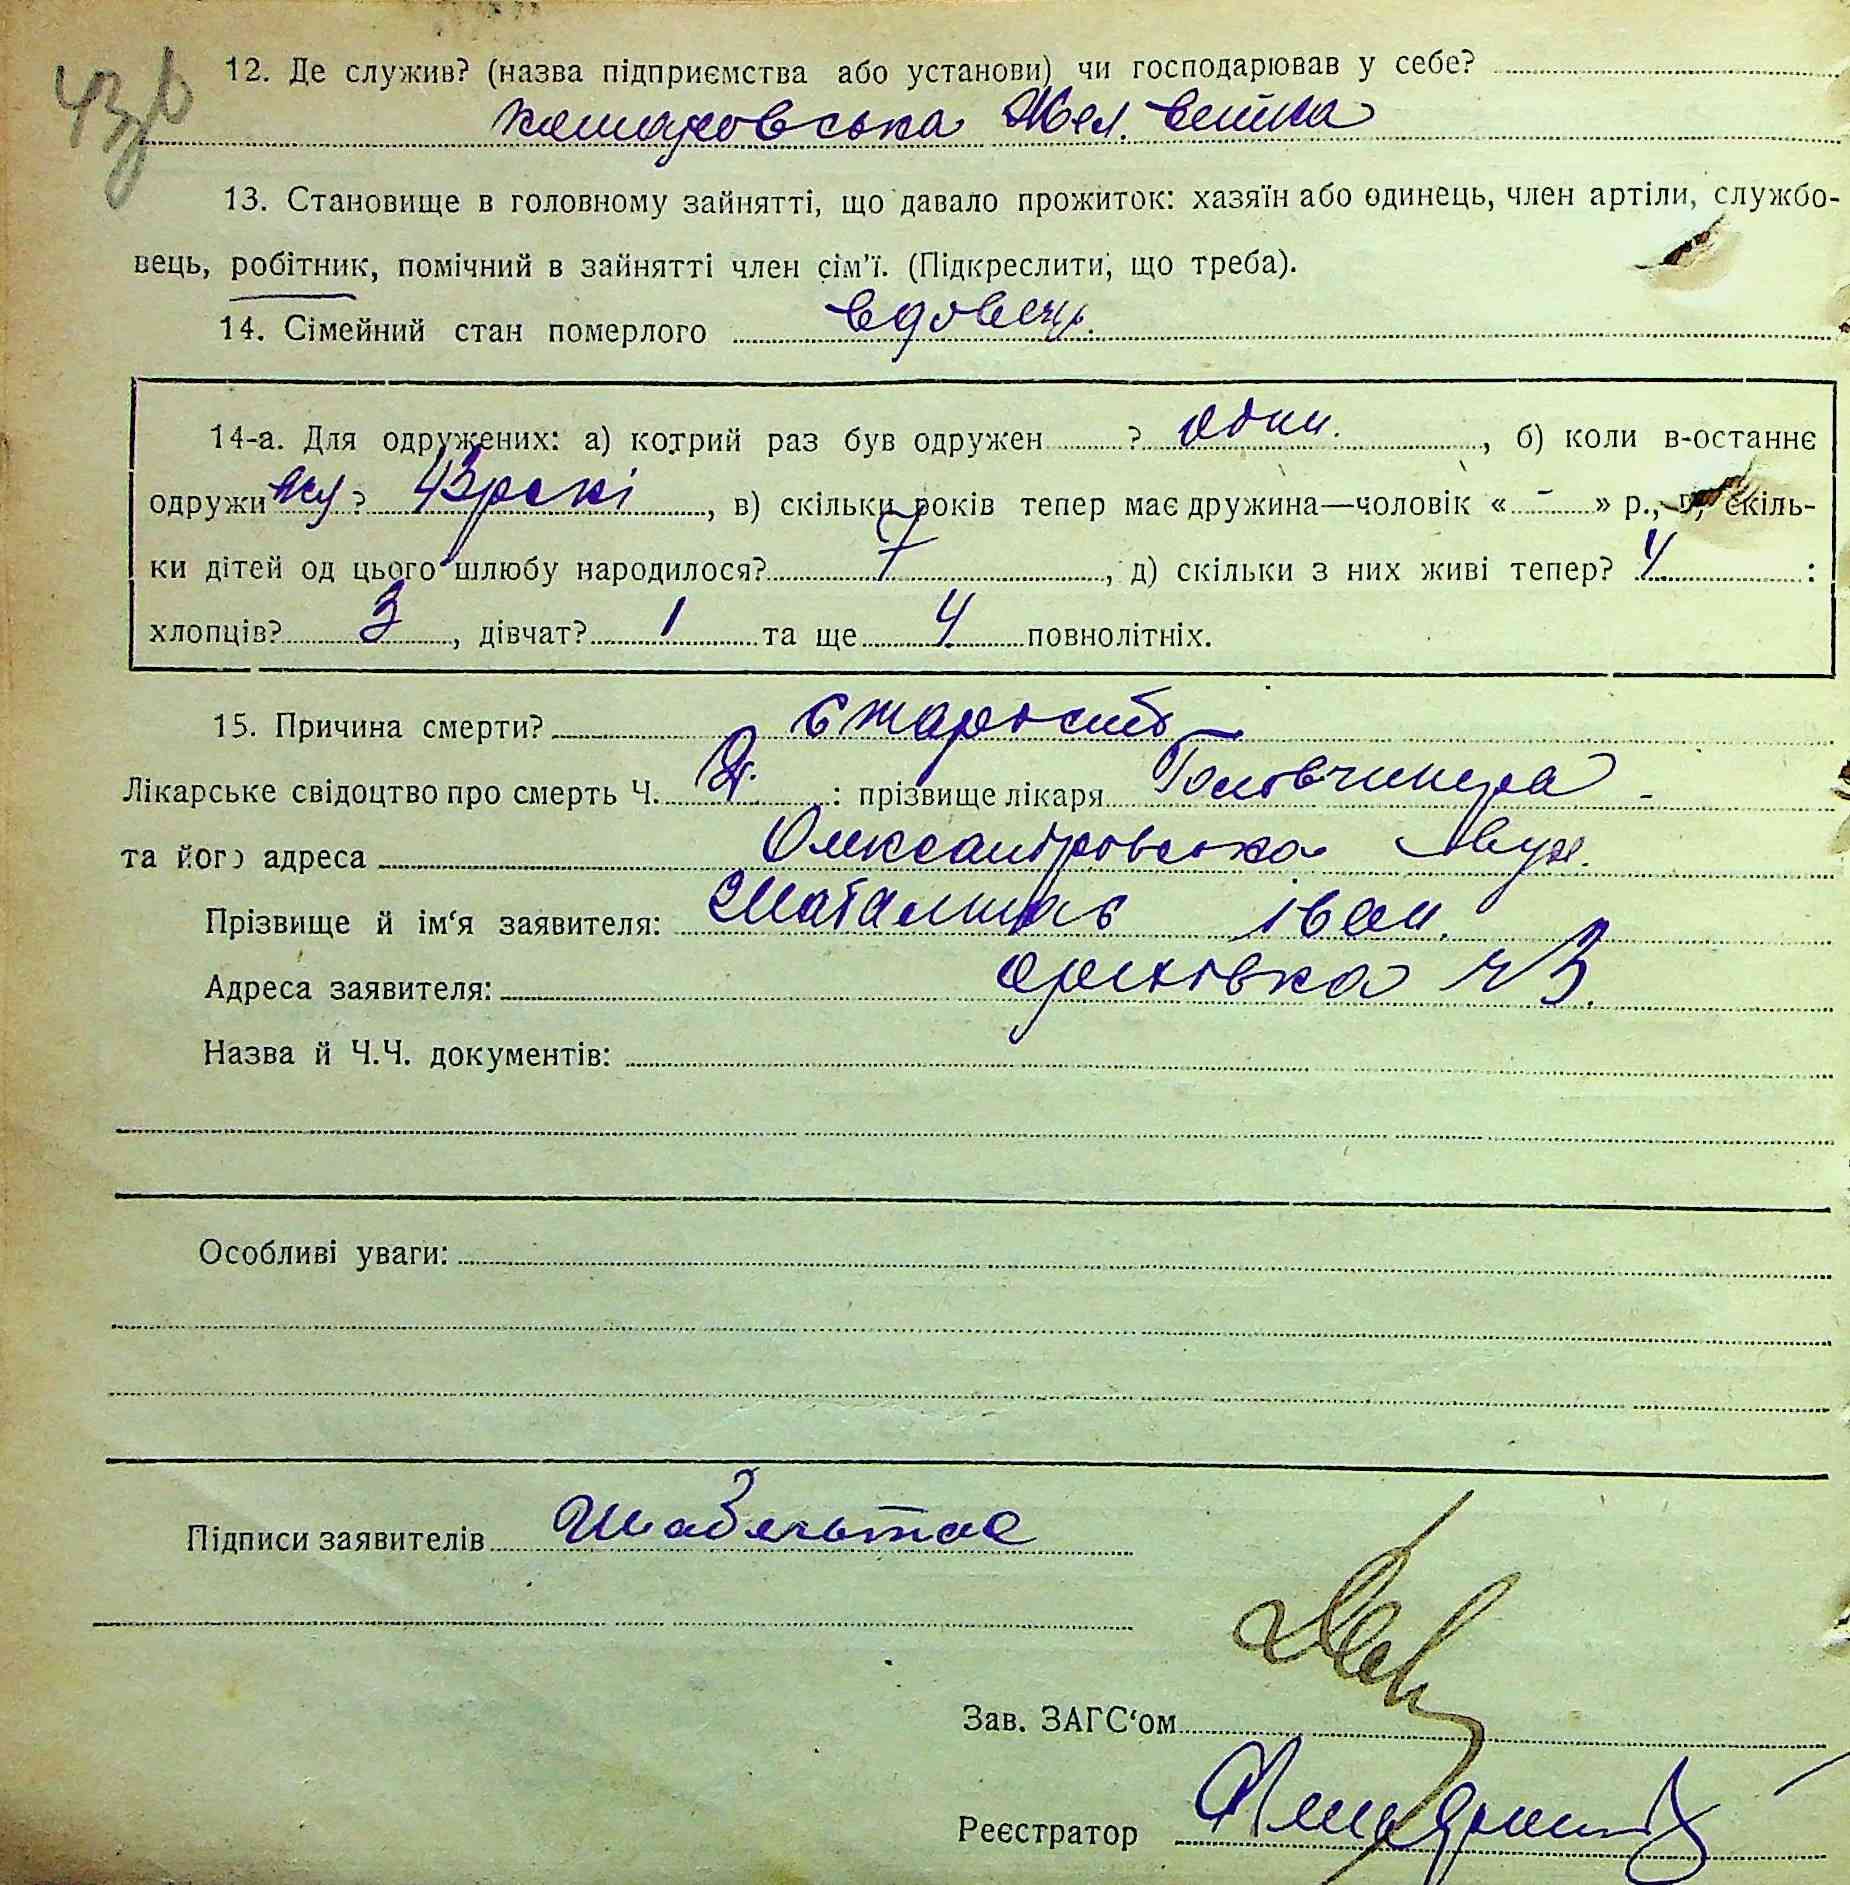 43 в
12. Де служив? (назва підприємства або установи) чи господарював у себе?
Жел.
13. Становище в головному зайнятті, що давало прожиток: хазяїн або одинець, член артіли, службо-
вець, робітник, помічний в зайнятті член сім'ї. (Підкреслити, що треба).
14. Сімейний стан померлого вдовець.
14-а. Для одружених: а) котрий раз був одружен ? один. , б) коли в-останнє
одружи вся ? 43 рокі , в) скільки років тепер має дружина—чоловік « - » р., г) скіль-
ки дітей од цього шлюбу народилося? 7 , д) скільки з них живі тепер? 4 :
хлопців? 3 , дівчат? 1 та ще 4 повнолітніх.
15. Причина смерти? старость
Лікарське свідоцтво про смерть Ч. : прізвище лікаря Головчинера
та його адреса Олександровська вул.
Прізвище й ім'я заявителя: Іван.
Адреса заявителя: Орехівка ч 3.
Назва й Ч.Ч. документів:
Особливі уваги:
Підписи заявителів
Зав. ЗАГС'ом
Реєстратор